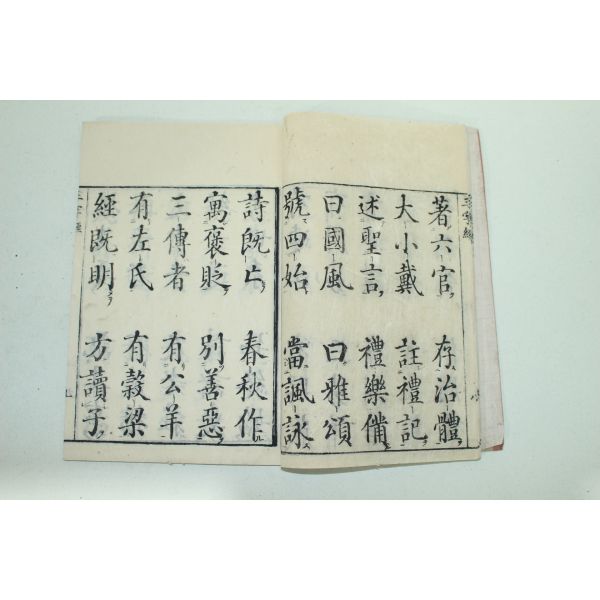 著六官　存治體
大小戴　註禮記
述聖言　禮樂備
曰國風　曰雅頌
號四始　當諷詠
詩既亡　春秋作
寓褒貶　別善惡
三傳者　有公羊
有左氏　有穀梁
經既明　方讀子